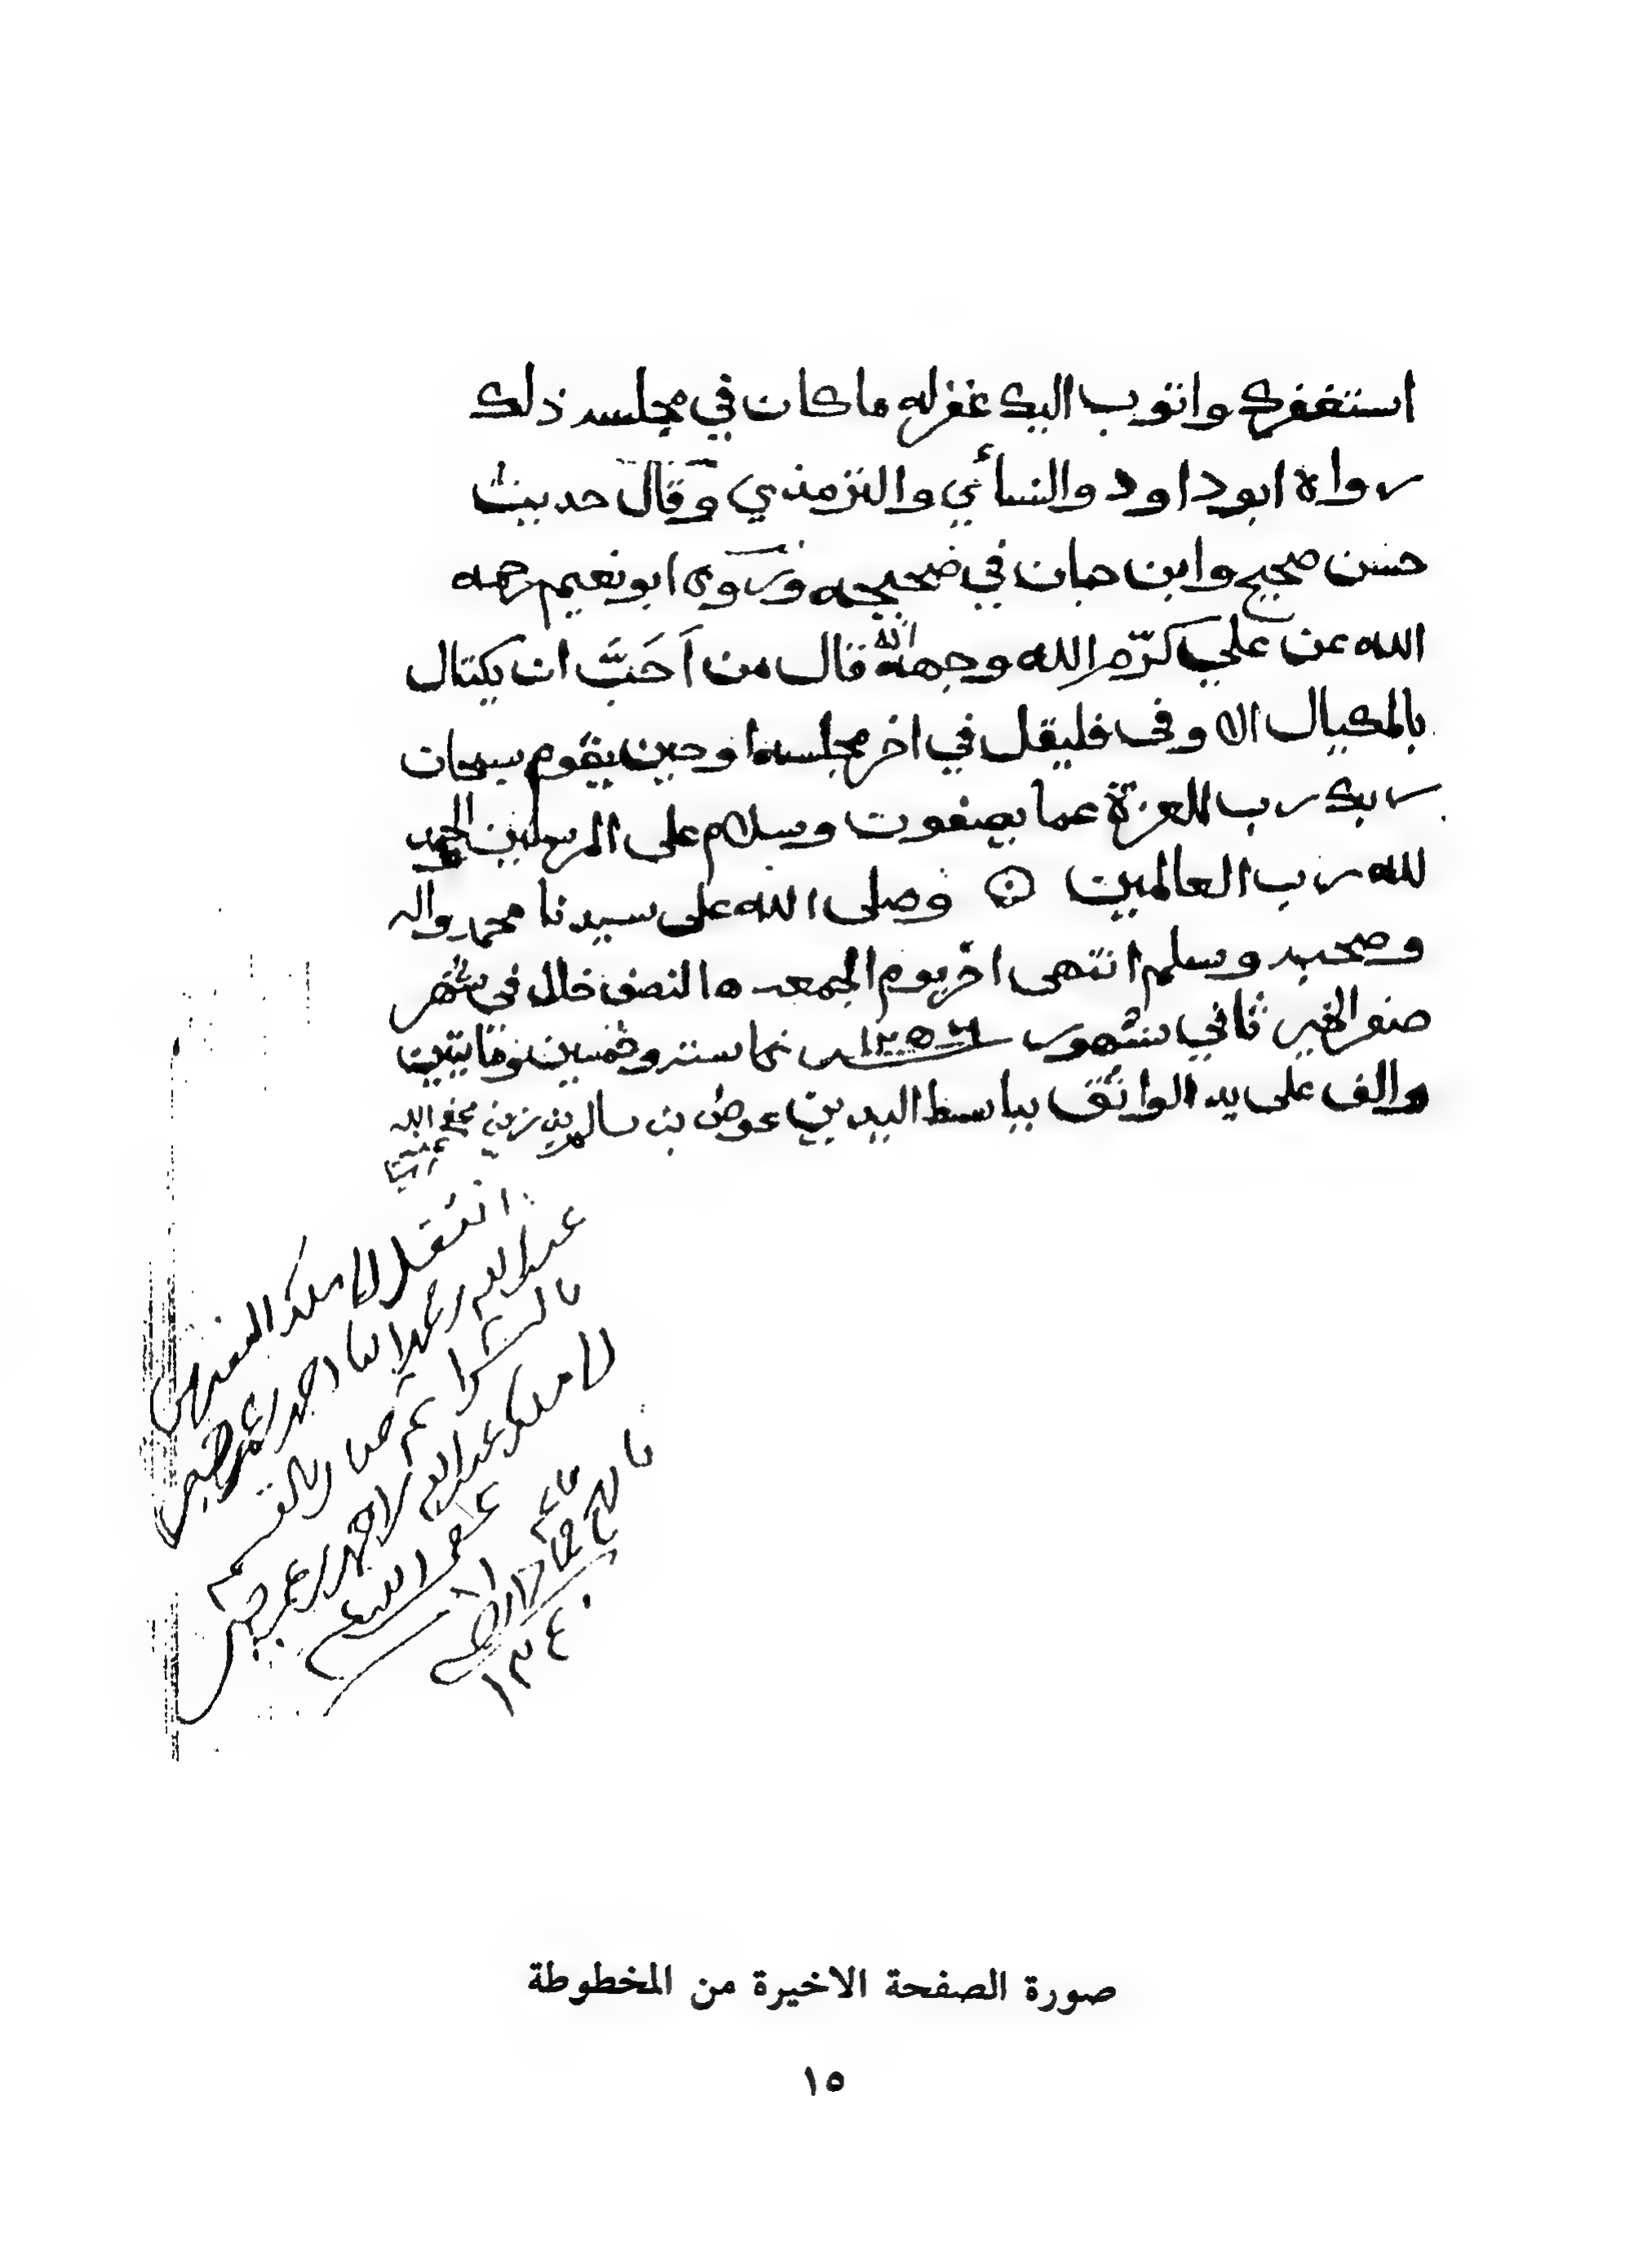 استغفرك واتوب اليك غفر له ما كان في مجلسه ذلك
رواه ابو داود والنسائي والترمذي وقال حديث
حسن صحيح وابن حبان في صحيحه وروى ابو نعيم رحمه
الله عن علي كرّم الله وجهه قال من اَحَبَّ ان يكتال
بالمكيال الاوفى فليقل في اخر مجلسه او حين يقوم سبحان
ربك رب العزة عما يصفون وسلام على المرسلين الحمد
لله رب العالمين وصلى الله على سيدنا محمد واله
وصحبه وسلم انتهى اخر يوم الجمعه النصف خلل في شهر
صفر الخير ثاني شهور ١٢٥٦ سته وخمسين ومايتين
والف على يد الواثق بباسط اليدين عوض بن سالم بن
انتقل الى ملك
عبدالله احمد
بالشرا ثم
الى ملك عبدالله احمد
عفى الله
١٣٤٠
صورة الصفحة الاخيرة من المخطوطة
١٥